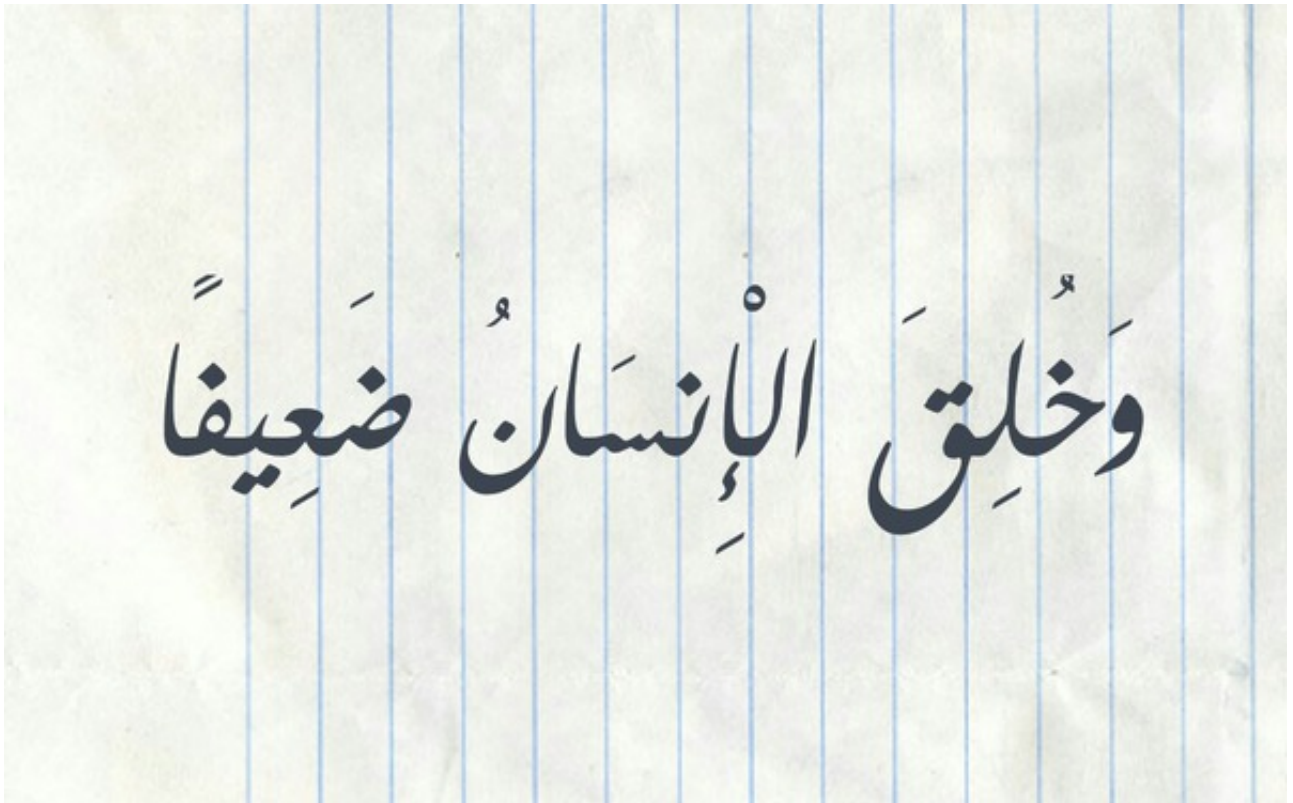 وَخُلِقَ الْإِنسَانُ ضَعِيفًا